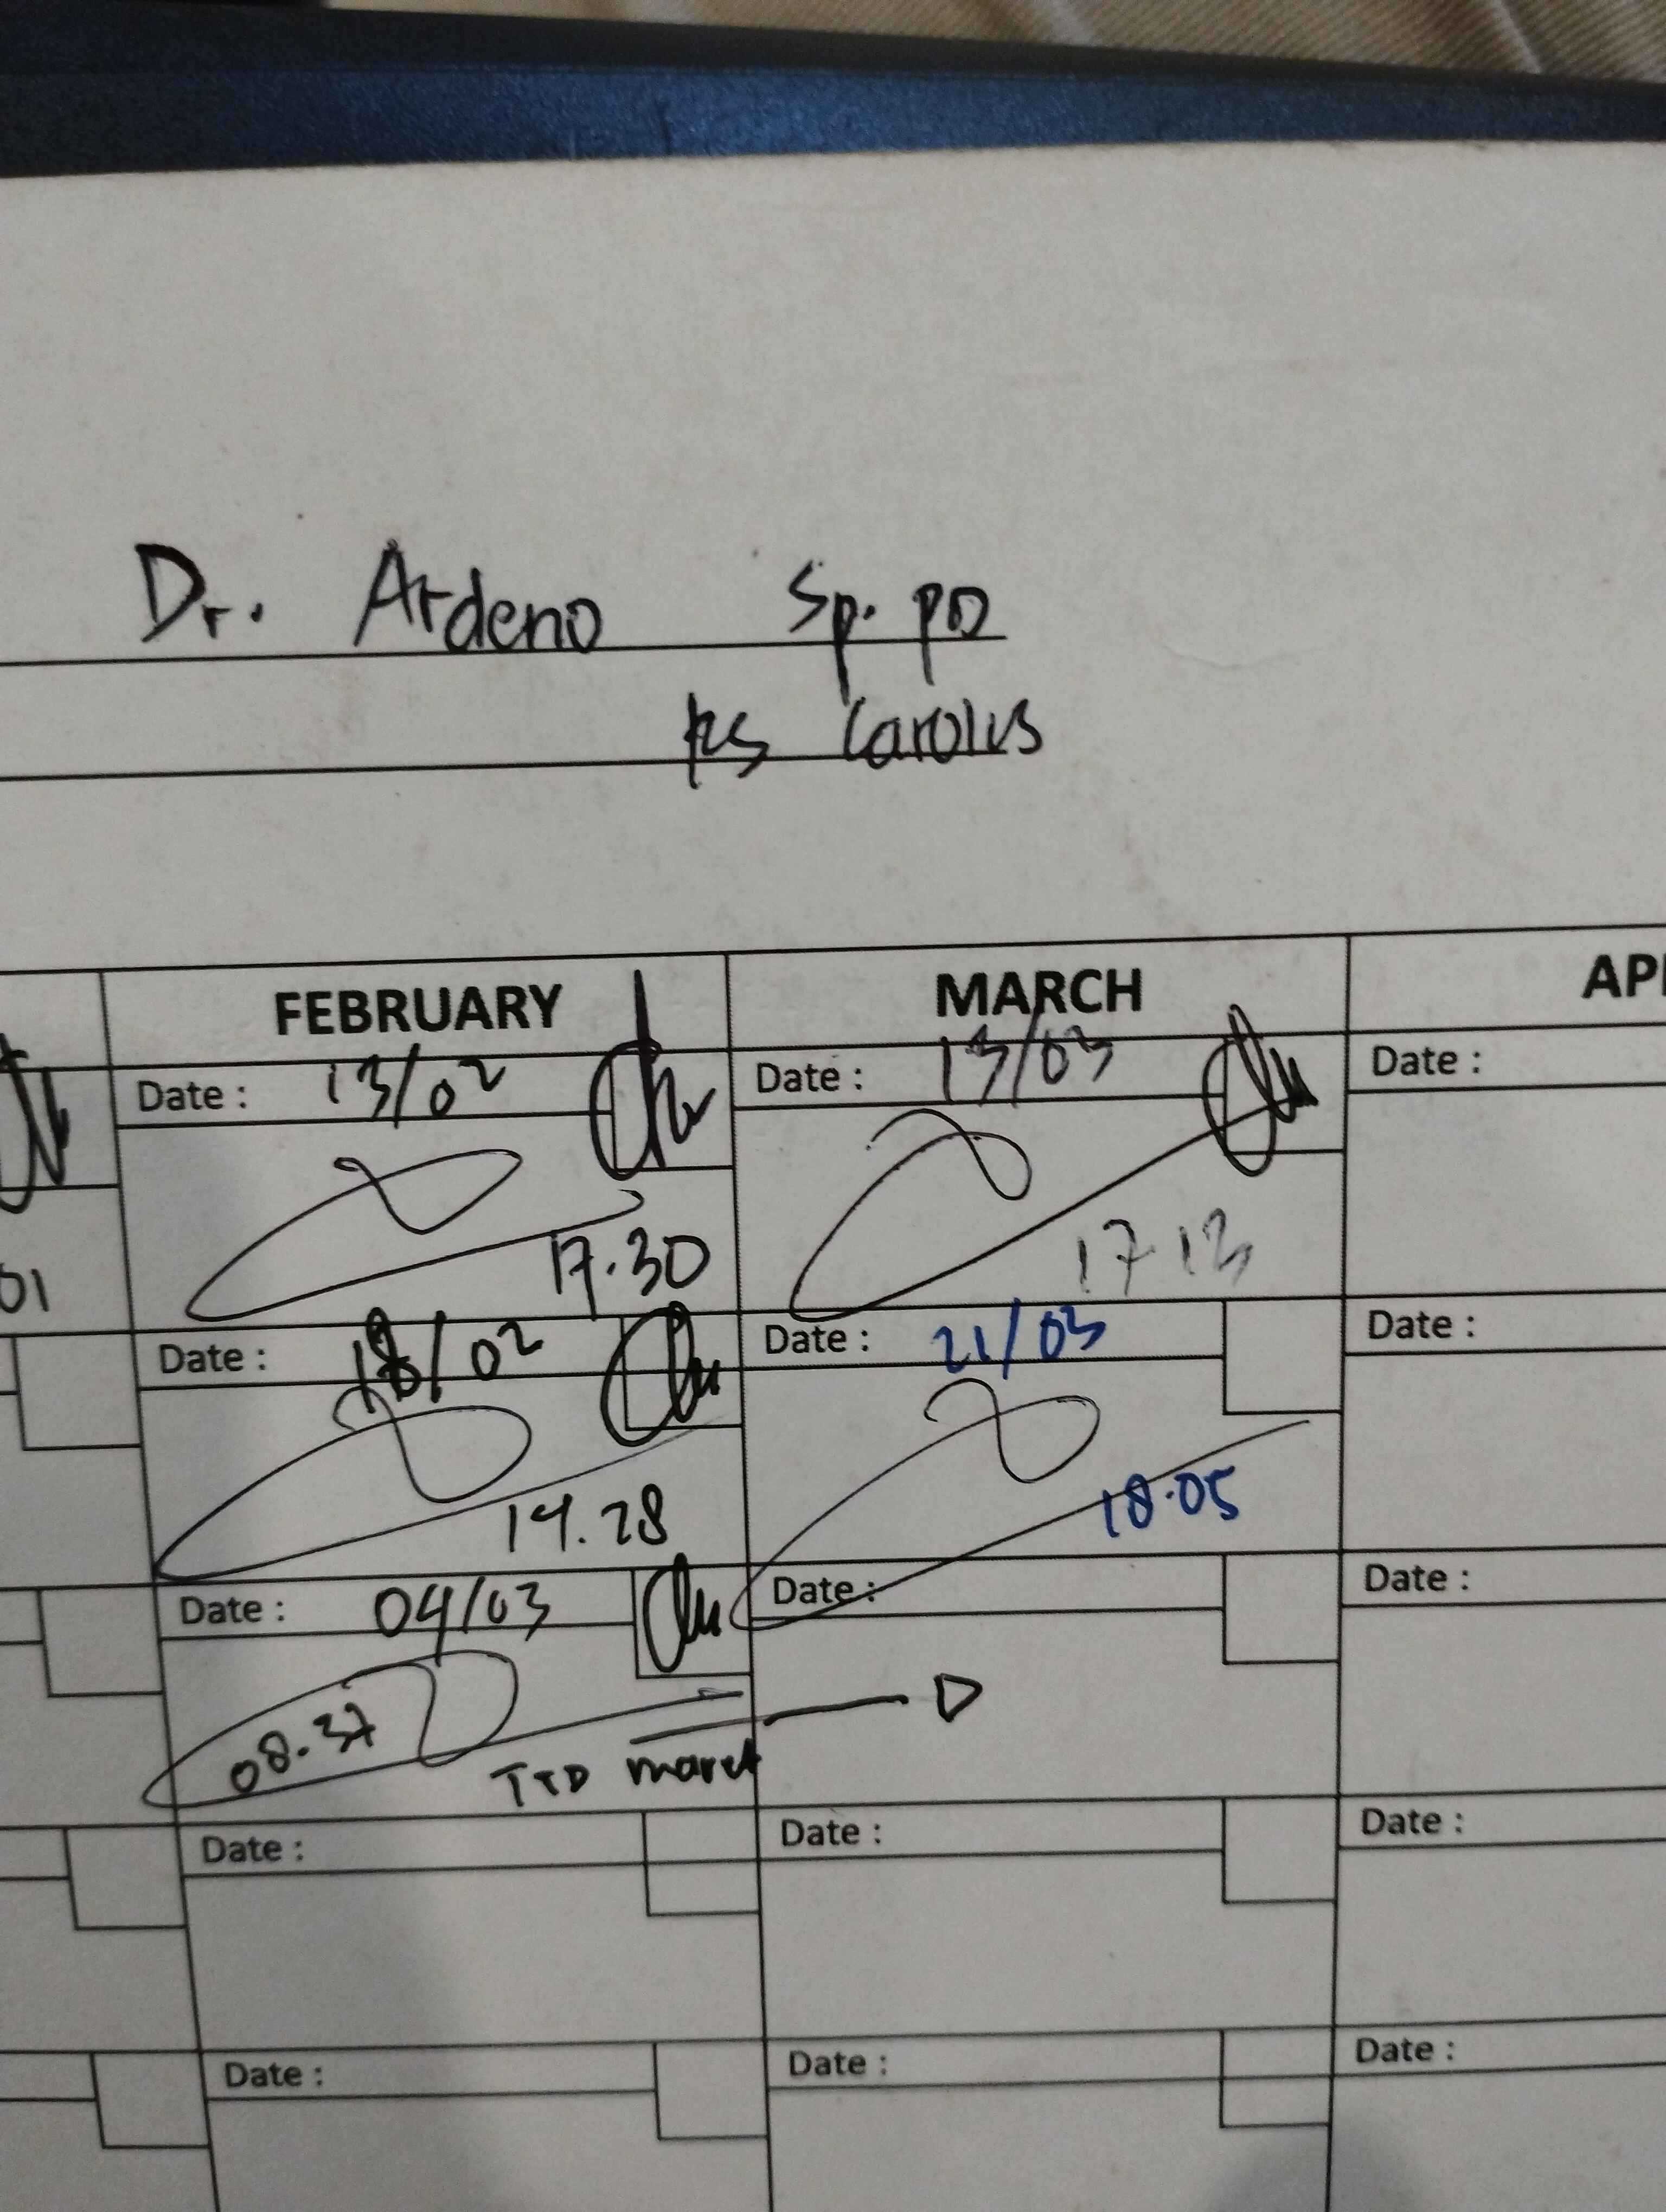 Dr. Ardeno Sp. PD
RS Carolus
FEBRUARY MARCH
Date : 13/02 Date : 13/03 Date :
17.30 17 13
01
Date : 18/02 Date : 21/03 Date :
14.28 18.05
Date : 04/03 Date : Date :
08.37
TTD maret
Date : Date : Date :
Date : Date : Date :